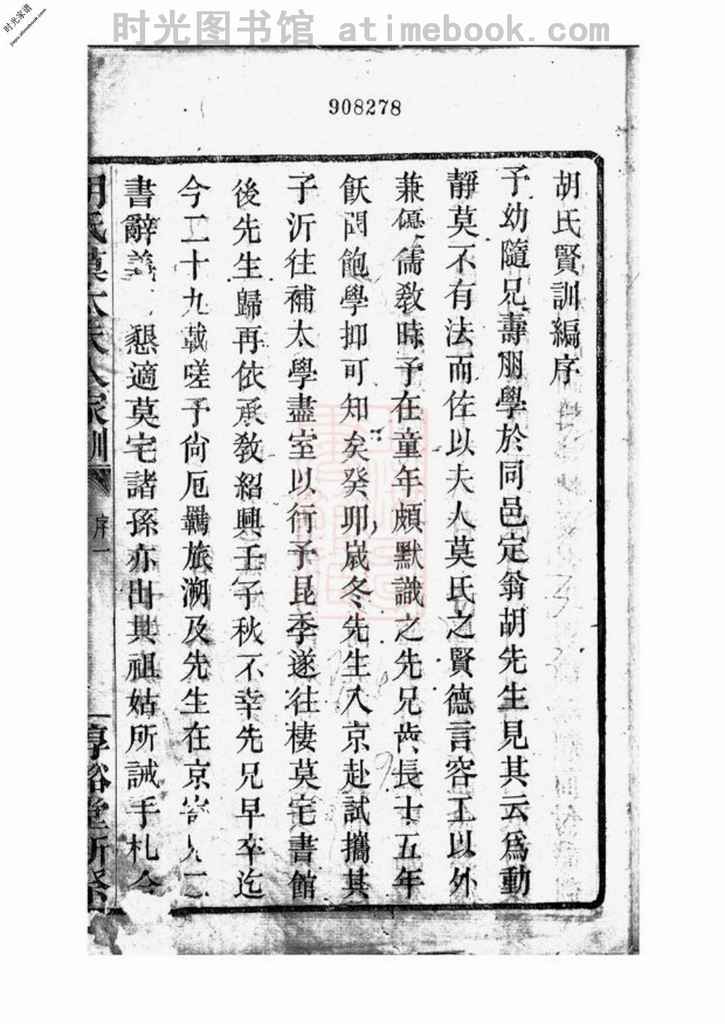 时光图书馆 atimebook.com
时光家谱
908278
胡氏賢訓編序
予幼隨兄壽朋學於同邑定翁胡先生見其云爲動
靜莫不有法而佐以夫人莫氏之賢德言容工以外
兼優儒敎時予在童年頗默識之先兄齒長十五年
飫聞飽學抑可知矣癸卯嵗冬先生入京赴試攜其
子沂往補太學盡室以行予昆季遂往棲莫宅書館
後先生歸再依承敎紹興壬子秋不幸先兄早卒迄
今二十九載嗟予尙厄羈旅溯及先生在京寄兄二
書辭義懇適莫宅諸孫亦出其祖姑所誡手札今
胡氏莫太夫人家訓
序一